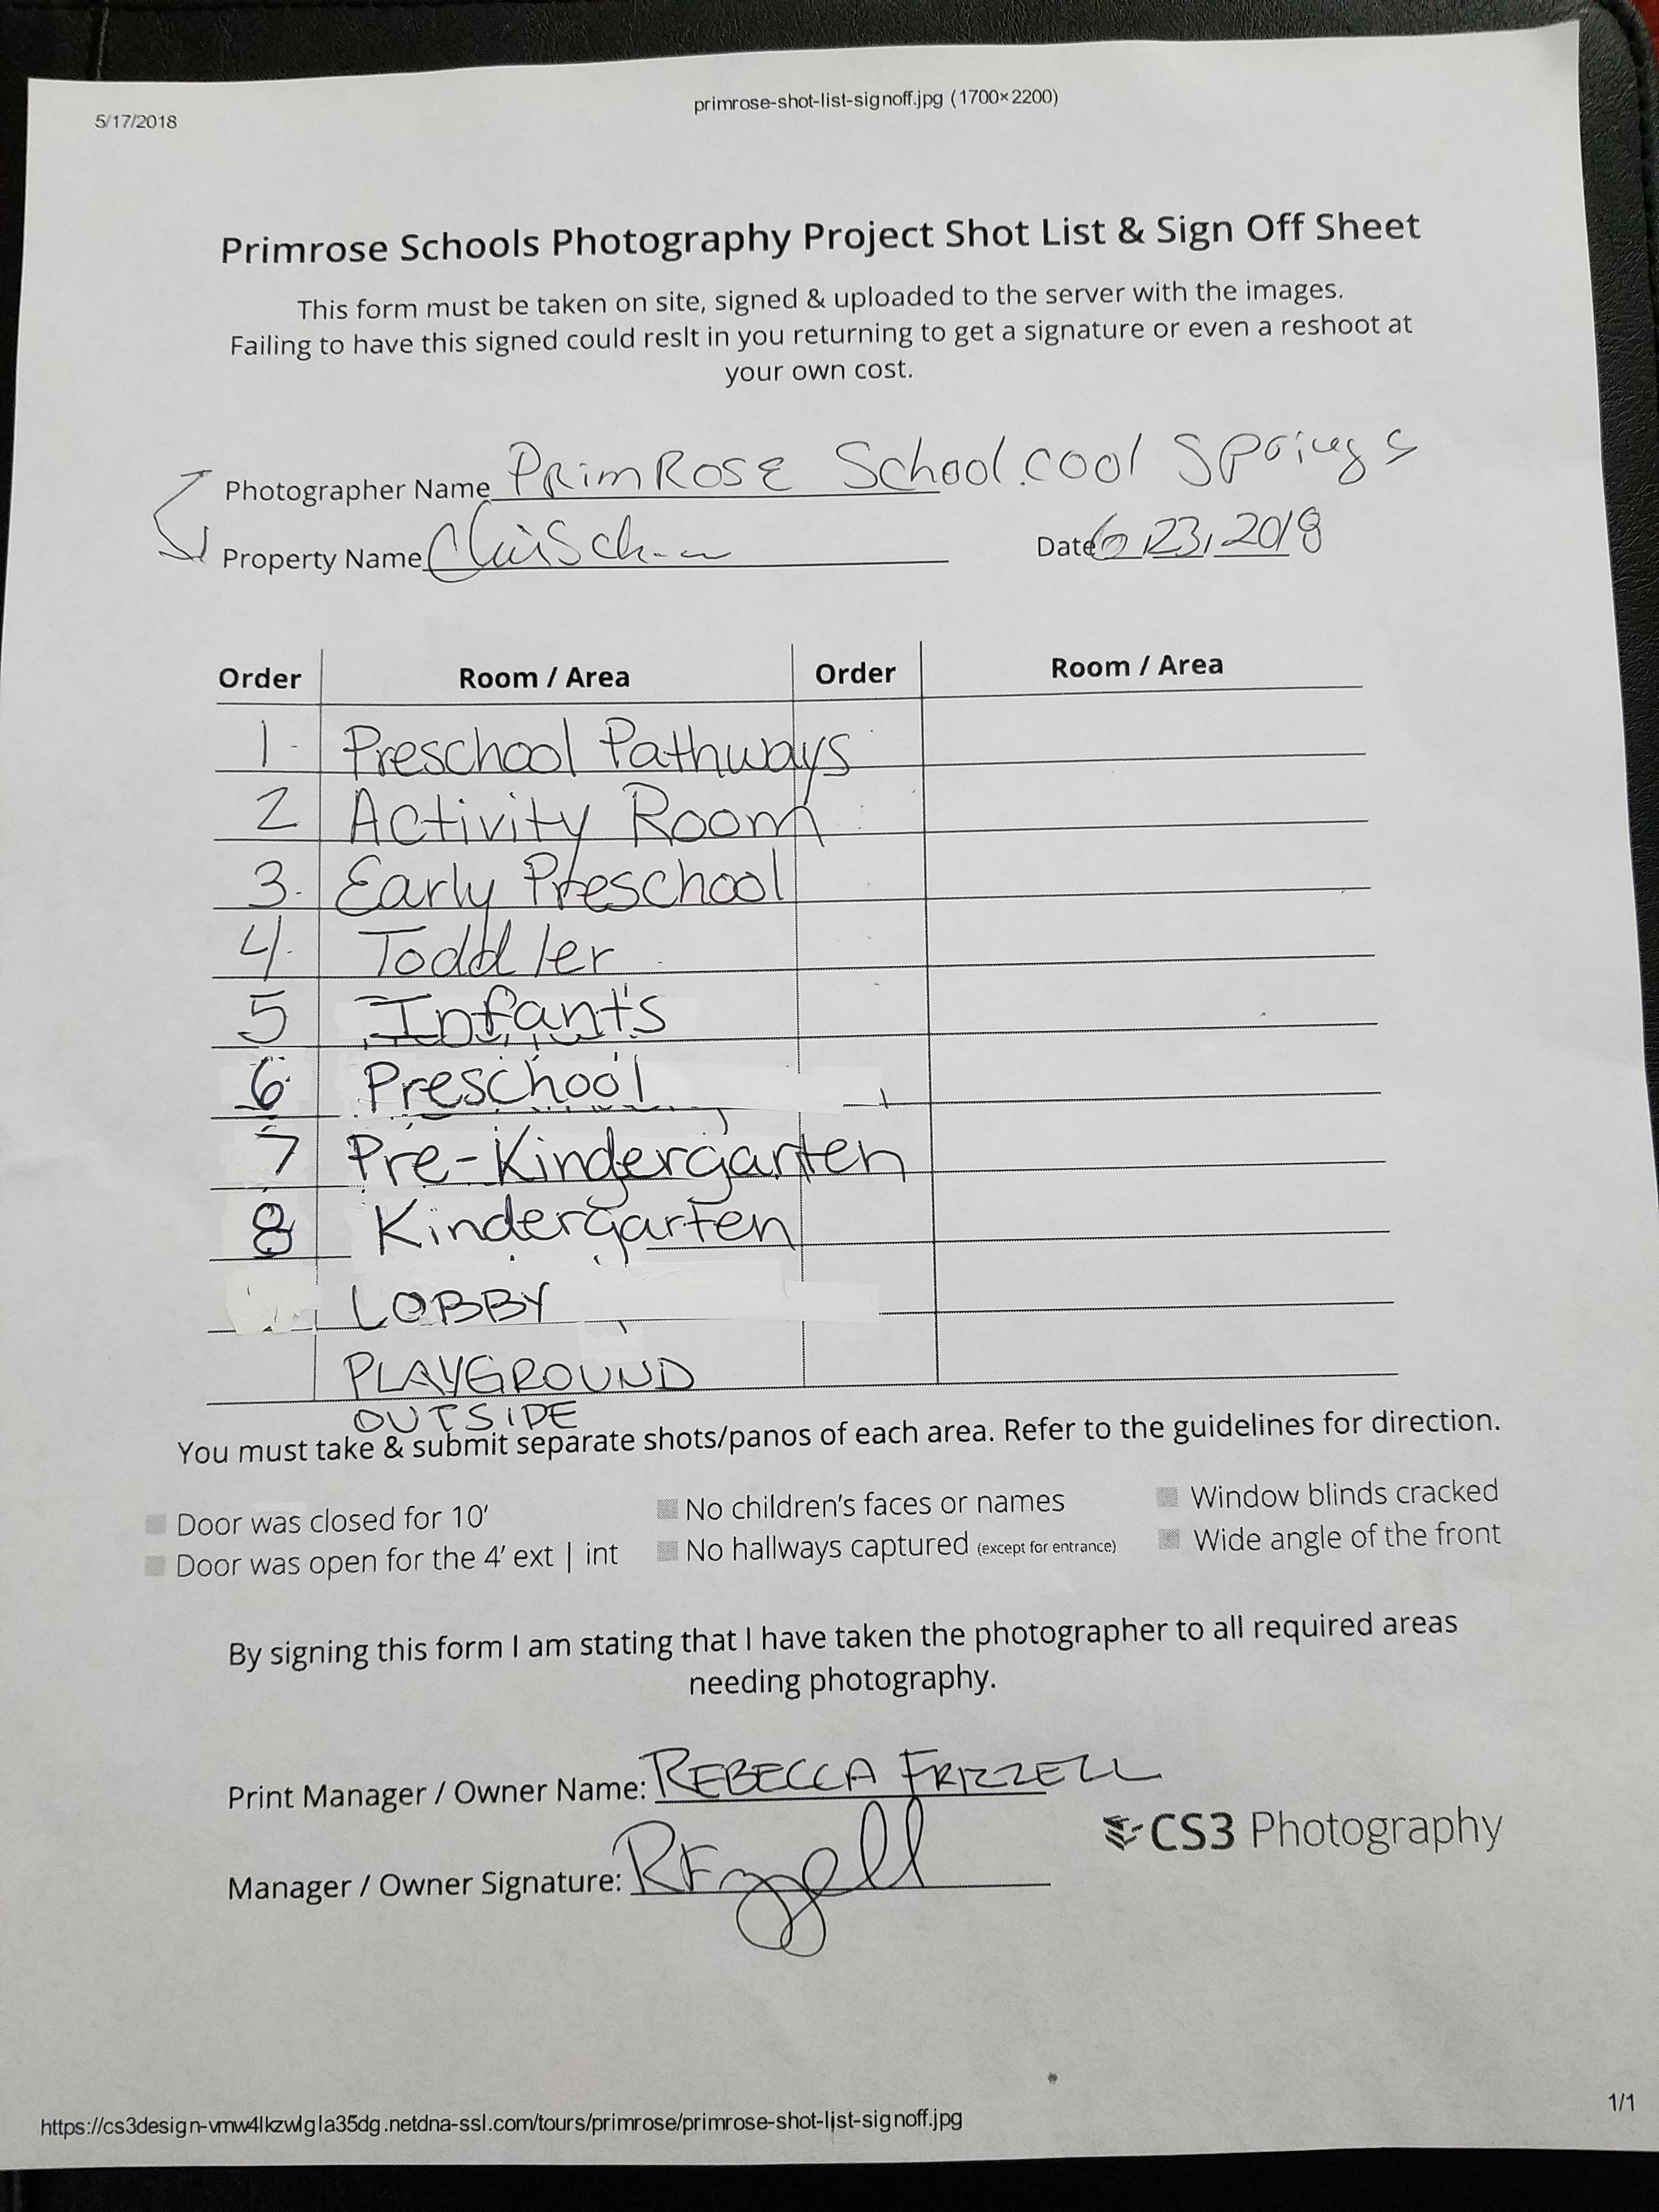 5/17/2018 primrose-shot-list-signoff.jpg (1700×2200)
Primrose Schools Photography Project Shot List & Sign Off Sheet
This form must be taken on site, signed & uploaded to the server with the images.
Failing to have this signed could reslt in you returning to get a signature or even a reshoot at
your own cost.
Photographer Name PRIMROSE School.cool Springs
Property Name Date 6,23,2018
Order Room / Area Order Room / Area
1. Preschool Pathways
2 Activity Room
3. Early Preschool
4. Toddler
5 Infants
6. Preschool
7 Pre-Kindergarten
8 Kindergarten
LOBBY
PLAYGROUND
OUTSIDE
You must take & submit separate shots/panos of each area. Refer to the guidelines for direction.
Door was closed for 10' No children's faces or names Window blinds cracked
Door was open for the 4' ext | int No hallways captured (except for entrance) Wide angle of the front
By signing this form I am stating that I have taken the photographer to all required areas
needing photography.
Print Manager / Owner Name: REBECCA FRIZZELL
CS3 Photography
Manager / Owner Signature: RFzzell
1/1
https://cs3design-vmw4lkzwlgla35dg.netdna-ssl.com/tours/primrose/primrose-shot-list-signoff.jpg